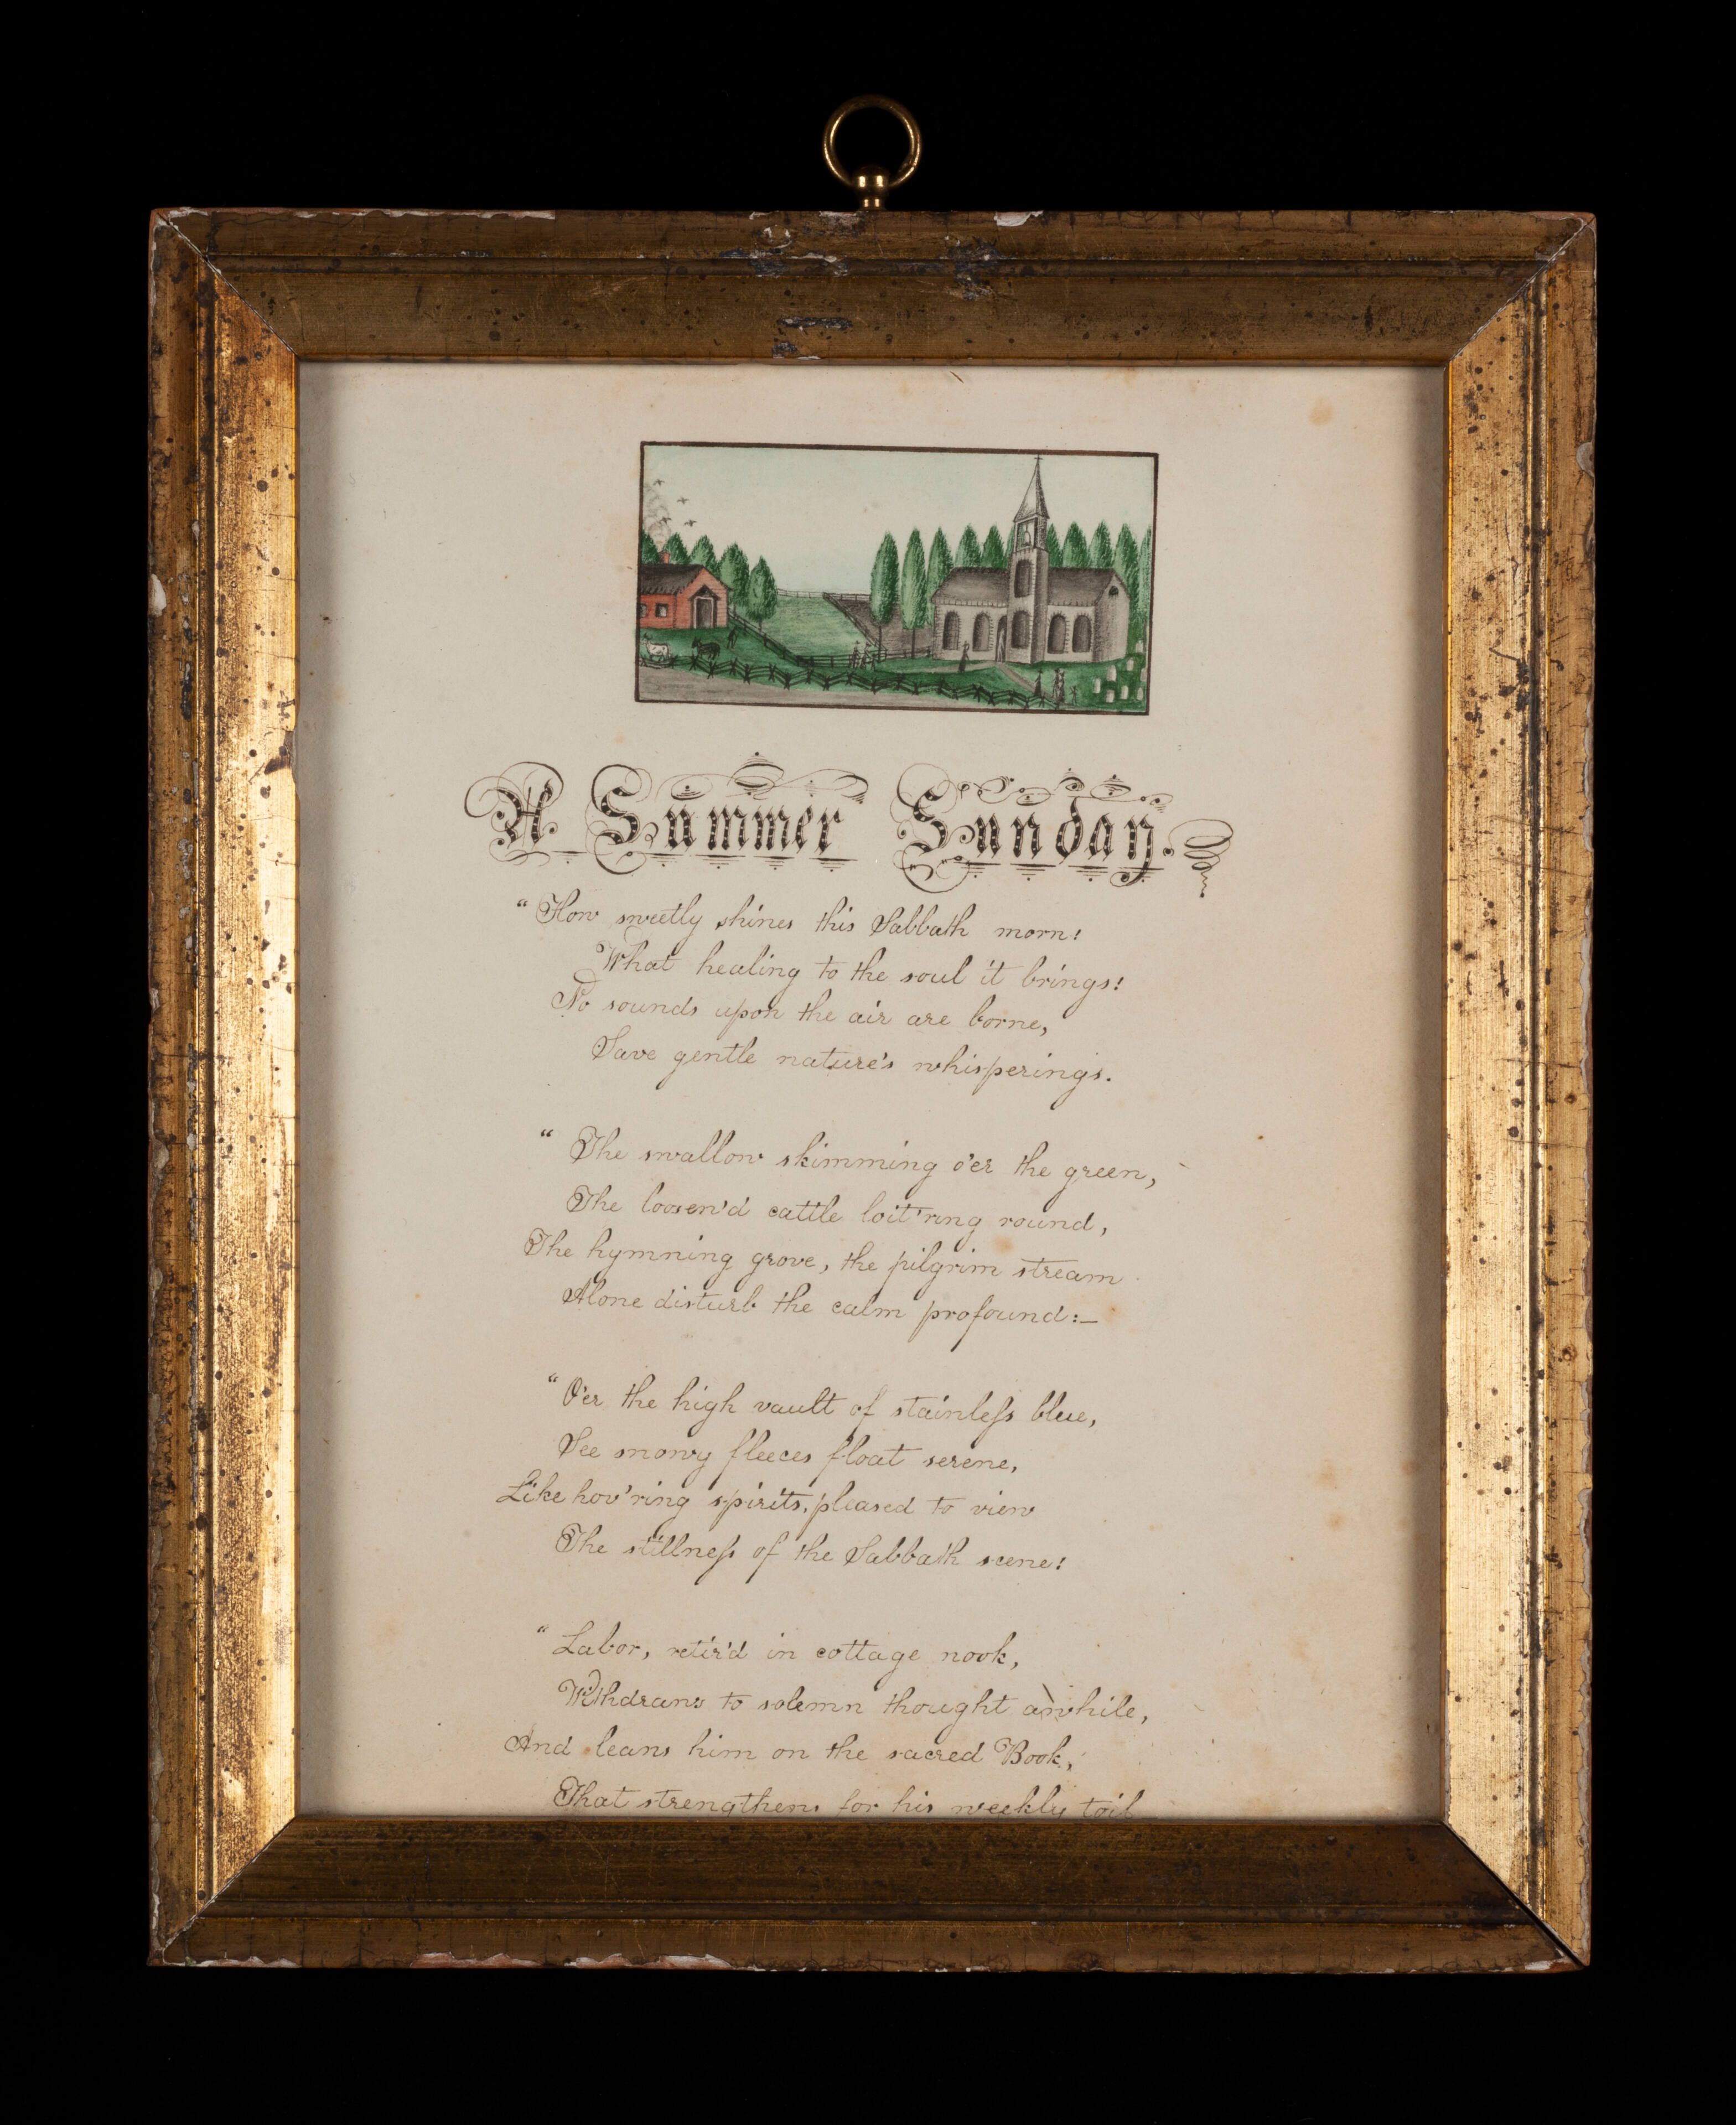 A Summer Sunday.
“How sweetly shines this Sabbath morn!
What healing to the soul it brings!
No sounds upon the air are borne,
Save gentle nature's whisperings.
“The swallow skimming o'er the green,
The loosen'd cattle loit'ring round,
The hymning grove, the pilgrim stream
Alone disturb the calm profound:—
“O'er the high vault of stainleſs blue,
See snowy fleeces float serene,
Like hov'ring spirits, pleased to view
The stillneſs of the Sabbath scene!
“Labor, retir'd in cottage nook,
Withdraws to solemn thought awhile,
And leans him on the sacred Book,
That strengthens for his weekly toil